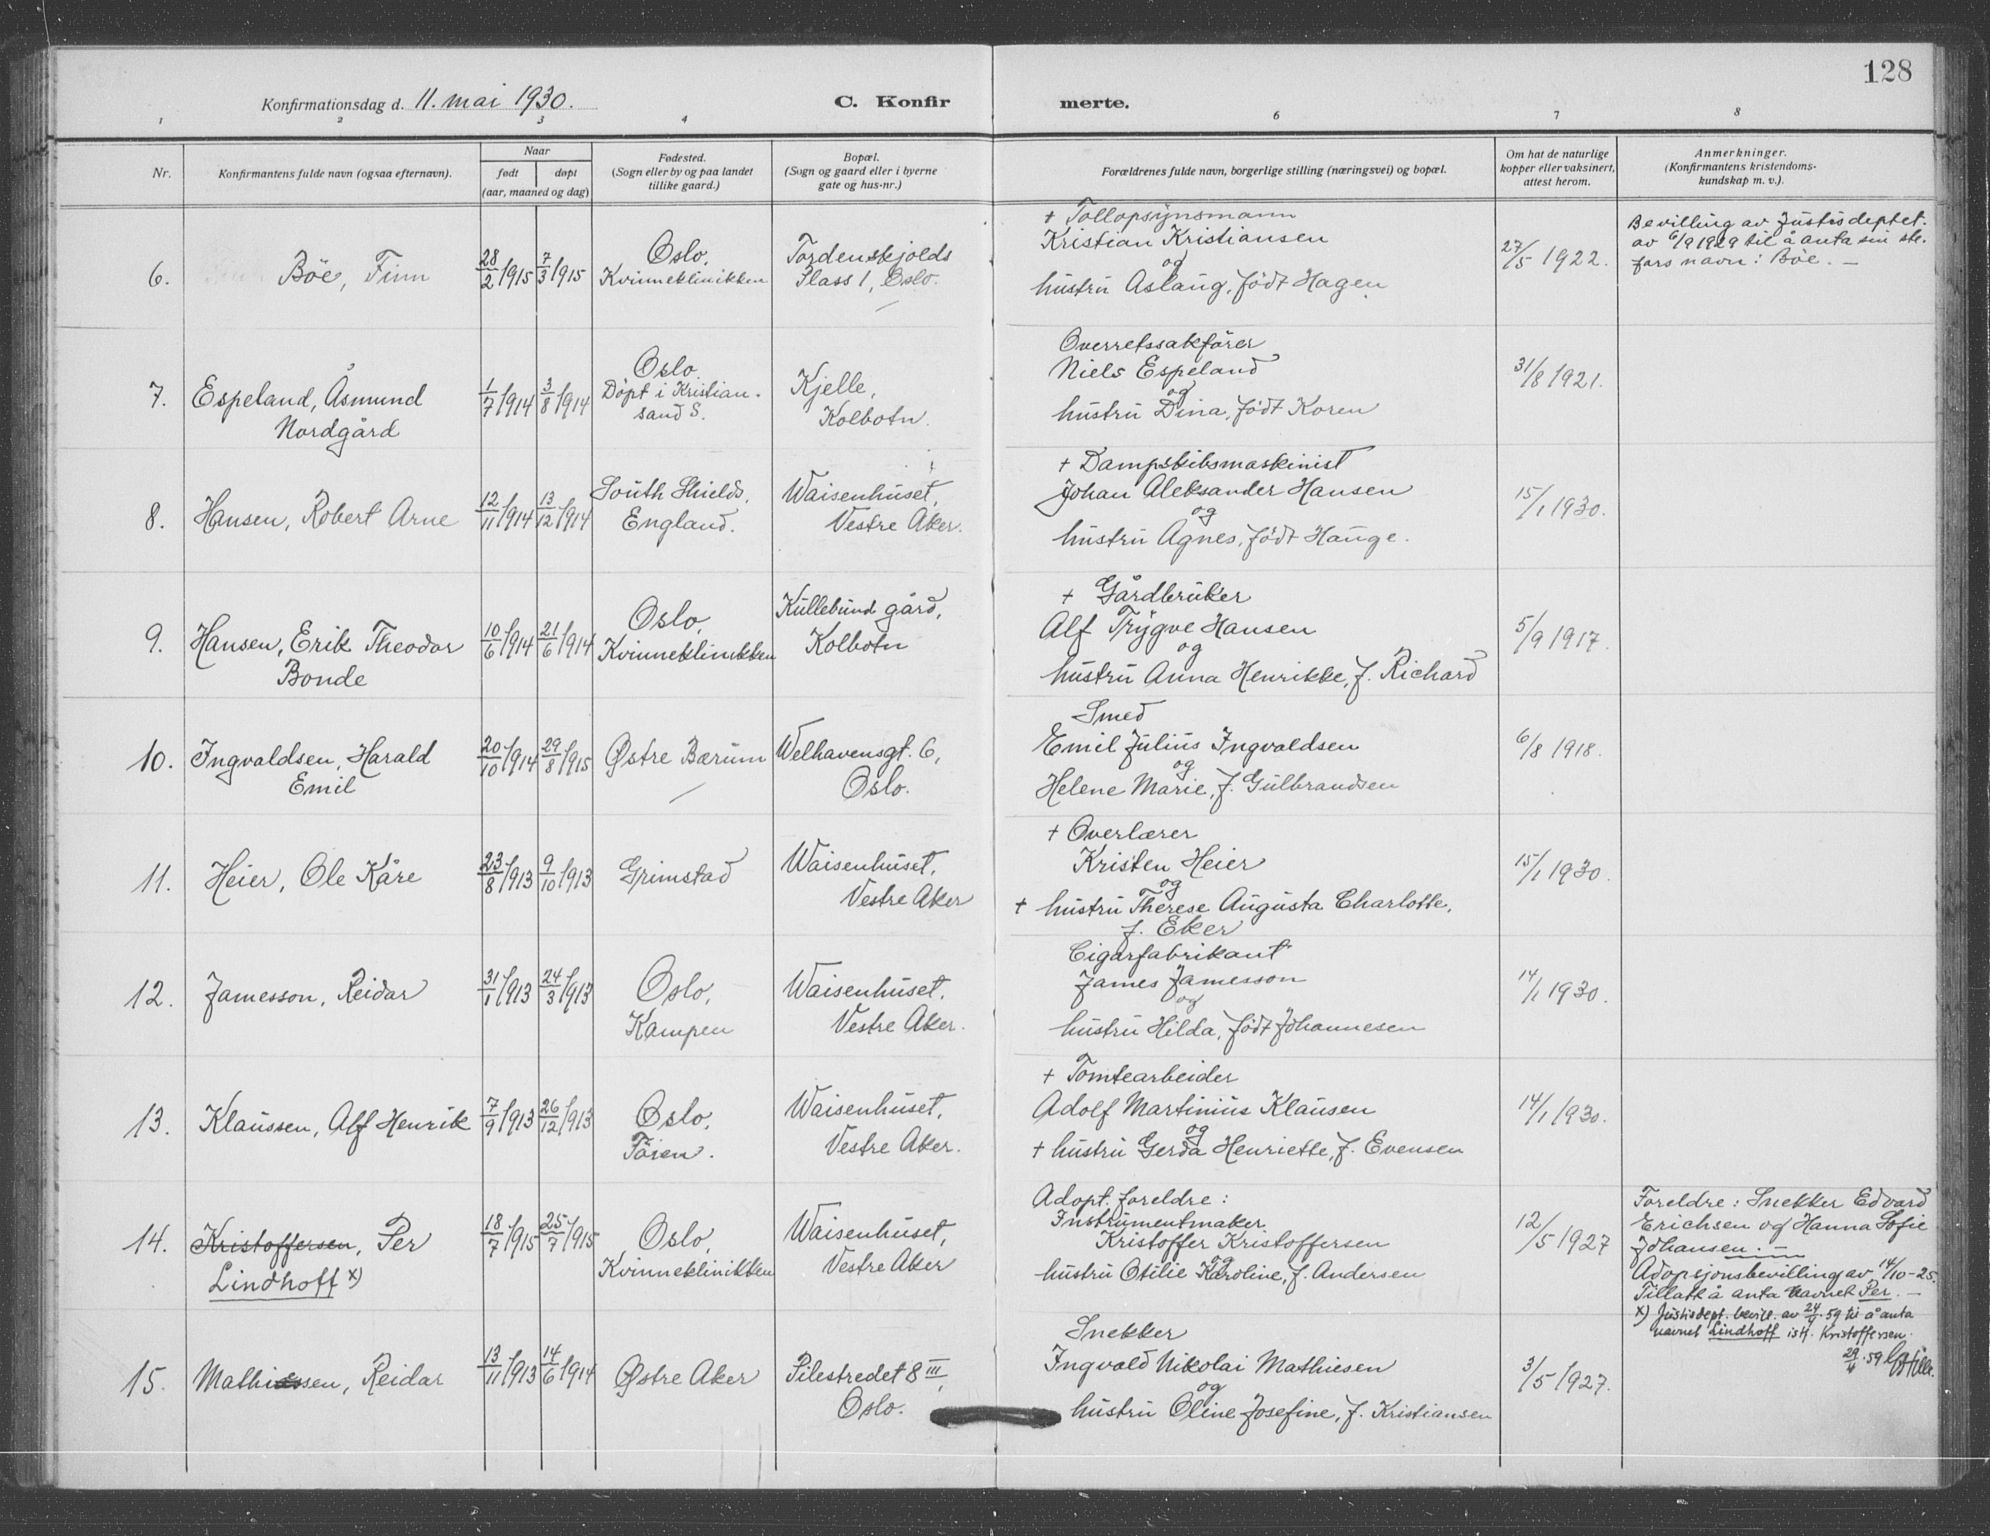 128
Konfirmationsdag d. 11. mai 1930.
C. Konfirmerte.
1 2 3 4 6 7 8
Nr.
Konfirmantens fulde navn (ogsaa efternavn).
Naar
født døpt
(aar, maaned og dag)
Fødested.
(Sogn eller by og paa landet
tillike gaard.)
Bopæl.
(Sogn og gaard eller i byerne
gate og hus-nr.)
Forældrenes fulde navn, borgerlige stilling (næringsvei) og bopæl.
Om hat de naturlige
kopper eller vaksinert,
attest herom.
Anmerkninger.
(Konfirmantens kristendoms-
kundskap m. v.).
6.
Böe, Finn
28/2 1915
7/3 1915
Oslo,
Kvinneklinikken
Tordenskjolds
Plass 1, Oslo.
+ Tollopsynsmann
Kristian Kristiansen
og
hustru Aslaug, født Hagen
27/5 1922.
Bevilling av Justisdeptet.
av 6/9 1929 til å anta sin ste-
fars navn: Böe. —
7.
Espeland, Åsmund
Nordgård
1/7 1914
3/8 1914
Oslo
Döpt i Kristian-
sand S.
Kjelle,
Kolbotn.
Overretssakförer
Niels Espeland
og
hustru Dina, født Koren
31/8 1921.
8.
Hansen, Robert Arne
12/11 1914
13/12 1914
South Shields,
England.
Waisenhuset,
Vestre Aker.
+ Dampskibsmaskinist
Johan Aleksander Hansen
og
hustru Agnes, født Hauge.
15/1 1930.
9.
Hansen, Erik Theodor
Bonde
10/6 1914
21/6 1914
Oslo,
Kvinneklinikken
Kullebund gård,
Kolbotn
+ Gårdbruker
Alf Trygve Hansen
og
hustru Anna Henrikke, f. Richard
5/9 1917.
10.
Ingvaldsen, Harald
Emil
20/10 1914
29/8 1915
Østre Bærum
Welhavensgt. 6,
Oslo.
Smed
Emil Julius Ingvaldsen
og
Helene Marie, f. Gulbrandsen
6/8 1918.
11.
Heier, Ole Kåre
23/8 1913
9/10 1913
Grimstad
Waisenhuset,
Vestre Aker
+ Overlærer
Kristen Heier
og
+ hustru Therese Augusta Charlotte,
f. Eker
15/1 1930.
12.
Jamesson, Reidar
31/1 1913
24/3 1913
Oslo,
Kampen
Waisenhuset,
Vestre Aker.
Cigarfabrikant
James Jamesson
og
hustru Hilda, født Johannesen
14/1 1930.
13.
Klaussen, Alf Henrik
7/9 1913
26/12 1913
Oslo,
Töien.
Waisenhuset,
Vestre Aker.
+ Tomtearbeider
Adolf Martinius Klausen
og
+ hustru Gerda Henriette, f. Evensen
14/1 1930.
14.
Kristoffersen, Per
Lindhoff x)
18/7 1915
25/7 1915
Oslo,
Kvinneklinikken
Waisenhuset,
Vestre Aker
Adopt. foreldre:
Instrumentmaker
Kristoffer Kristoffersen
og
hustru Otilie Karoline, f. Andersen
12/5 1927
Foreldre: Snekker Edvard
Erichsen og Hanna Sofie
Johansen. —
Adopsjonsbevilling av 14/10-25.
Tillatt å anta navnet Per. —
x) Justisdept. bevill. av 24/4-59 til å anta
navnet Lindhoff istf. Kristoffersen.
29/4-59
15.
Mathiassen, Reidar
13/11 1913
14/6 1914
Østre Aker
Pilestredet 8 III,
Oslo.
Snekker
Ingvald Nikolai Mathiesen
og
hustru Oline Josefine, f. Kristiansen
3/5 1927.